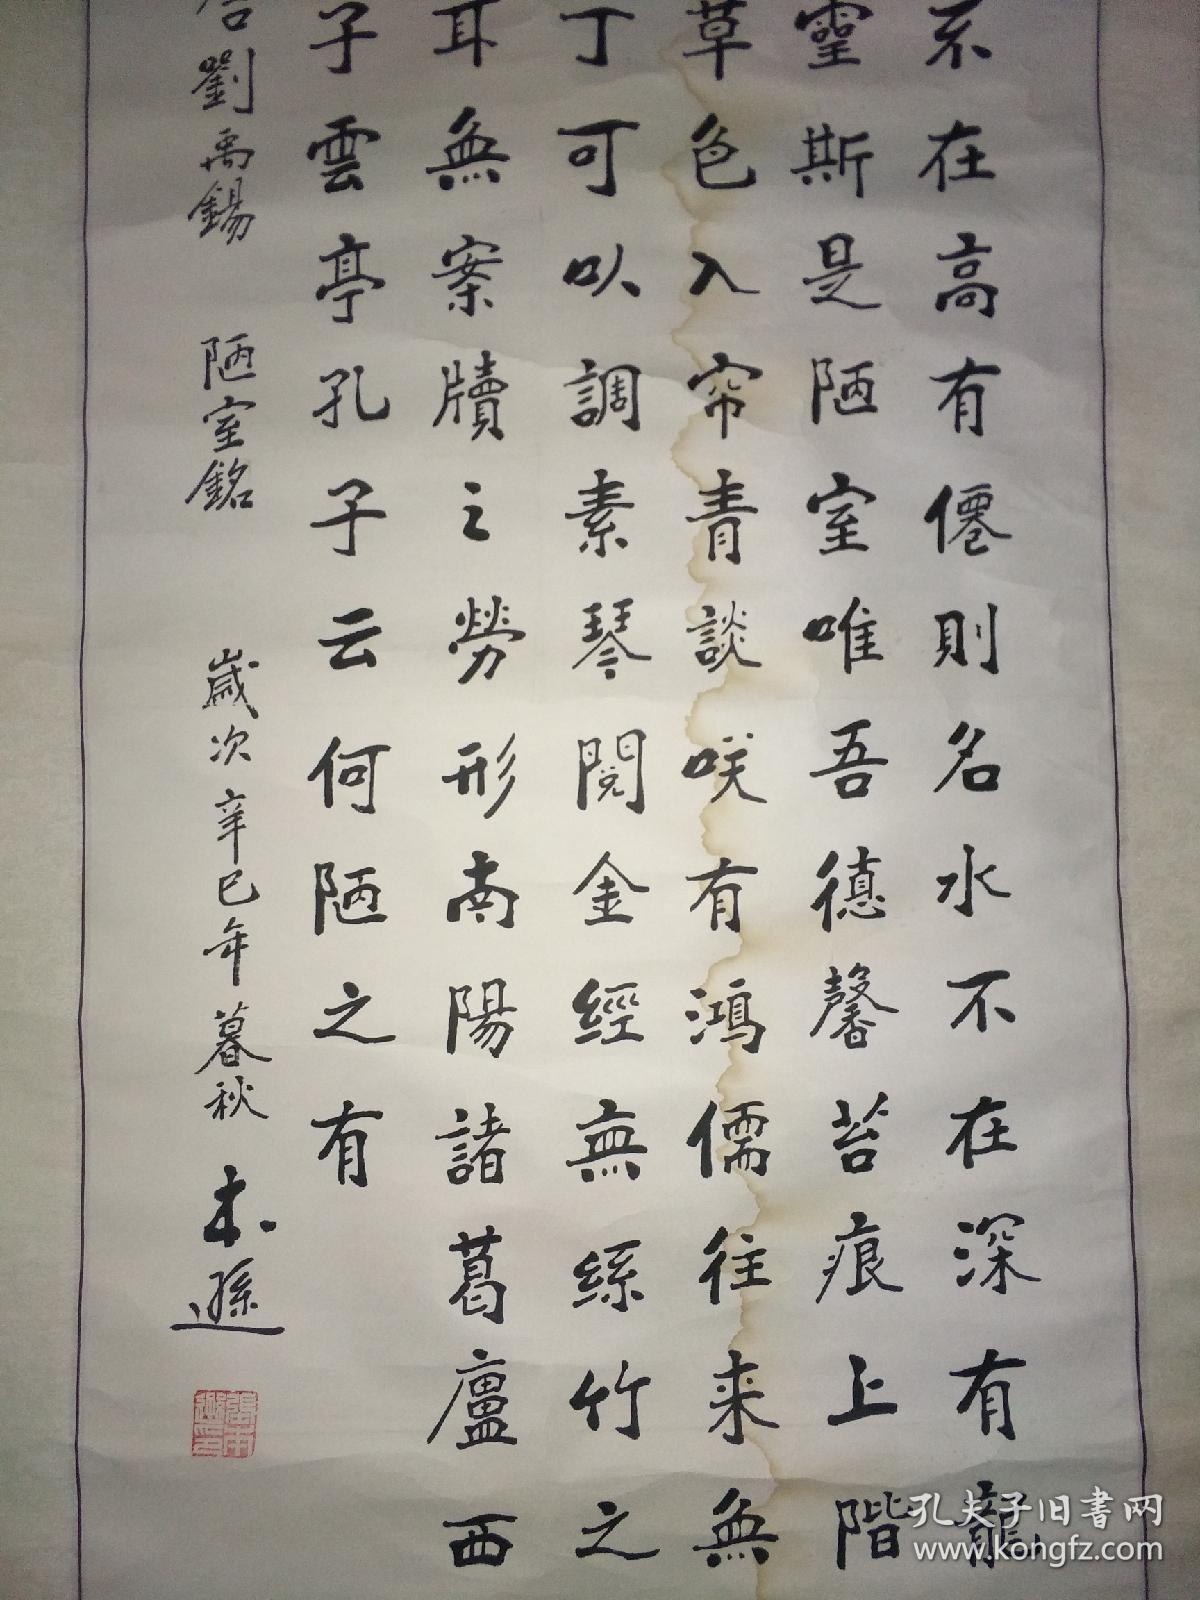 不在高有僊則名水不在深有龍
靈斯是陋室唯吾德馨苔痕上階
草色入帘青談咲有鴻儒往来無
丁可以調素琴閱金經無絲竹之
耳無案牘之勞形南陽諸葛廬西
子雲亭孔子云何陋之有
劉禹錫 陋室銘 歲次辛巳年暮秋
孔夫子旧書网
www.kongfz.com